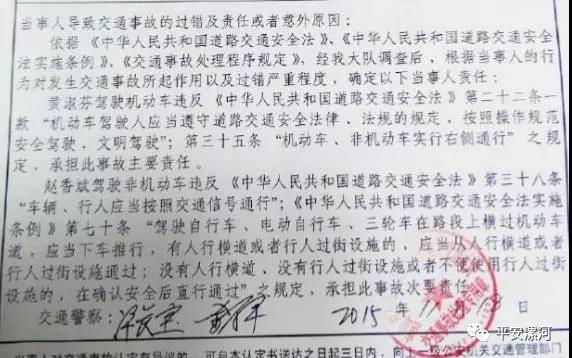 当事人导致交通事故的过错及责任或者意外原因：
依据《中华人民共和国道路交通安全法》、《中华人民共和国道路交通安全
法实施条例》、《交通事故处理程序规定》，经我大队调查后，根据当事人的行
为对发生交通事故所起作用以及过错严重程度，确定以下当事人责任：
黄淑芬驾驶机动车违反《中华人民共和国道路交通安全法》第二十二条一
款“机动车驾驶人应当遵守道路交通安全法律、法规的规定，按照操作规范
安全驾驶，文明驾驶”；第三十五条“机动车、非机动车实行右侧通行”之规
定，承担此事故主要责任。
赵香斌驾驶非机动车违反《中华人民共和国道路交通安全法》第三十八条
“车辆、行人应当按照交通信号通行”；《中华人民共和国道路交通安全法实施
条例》第七十条“驾驶自行车、电动自行车、三轮车在路段上横过机动车
道，应当下车推行，有人行横道或者行人过街设施的，应当从人行横道或者
行人过街设施通过；没有人行横道、没有行人过街设施或者不便使用行人过街
设施的，在确认安全后直行通过”之规定，承担此事故次要责任。
交通警察： 2015 11 18 日
当事人对交通事故认定有异议的，可自本认定书送达之日起三日内，向上一级公安机关交通管理部门
平安漯河